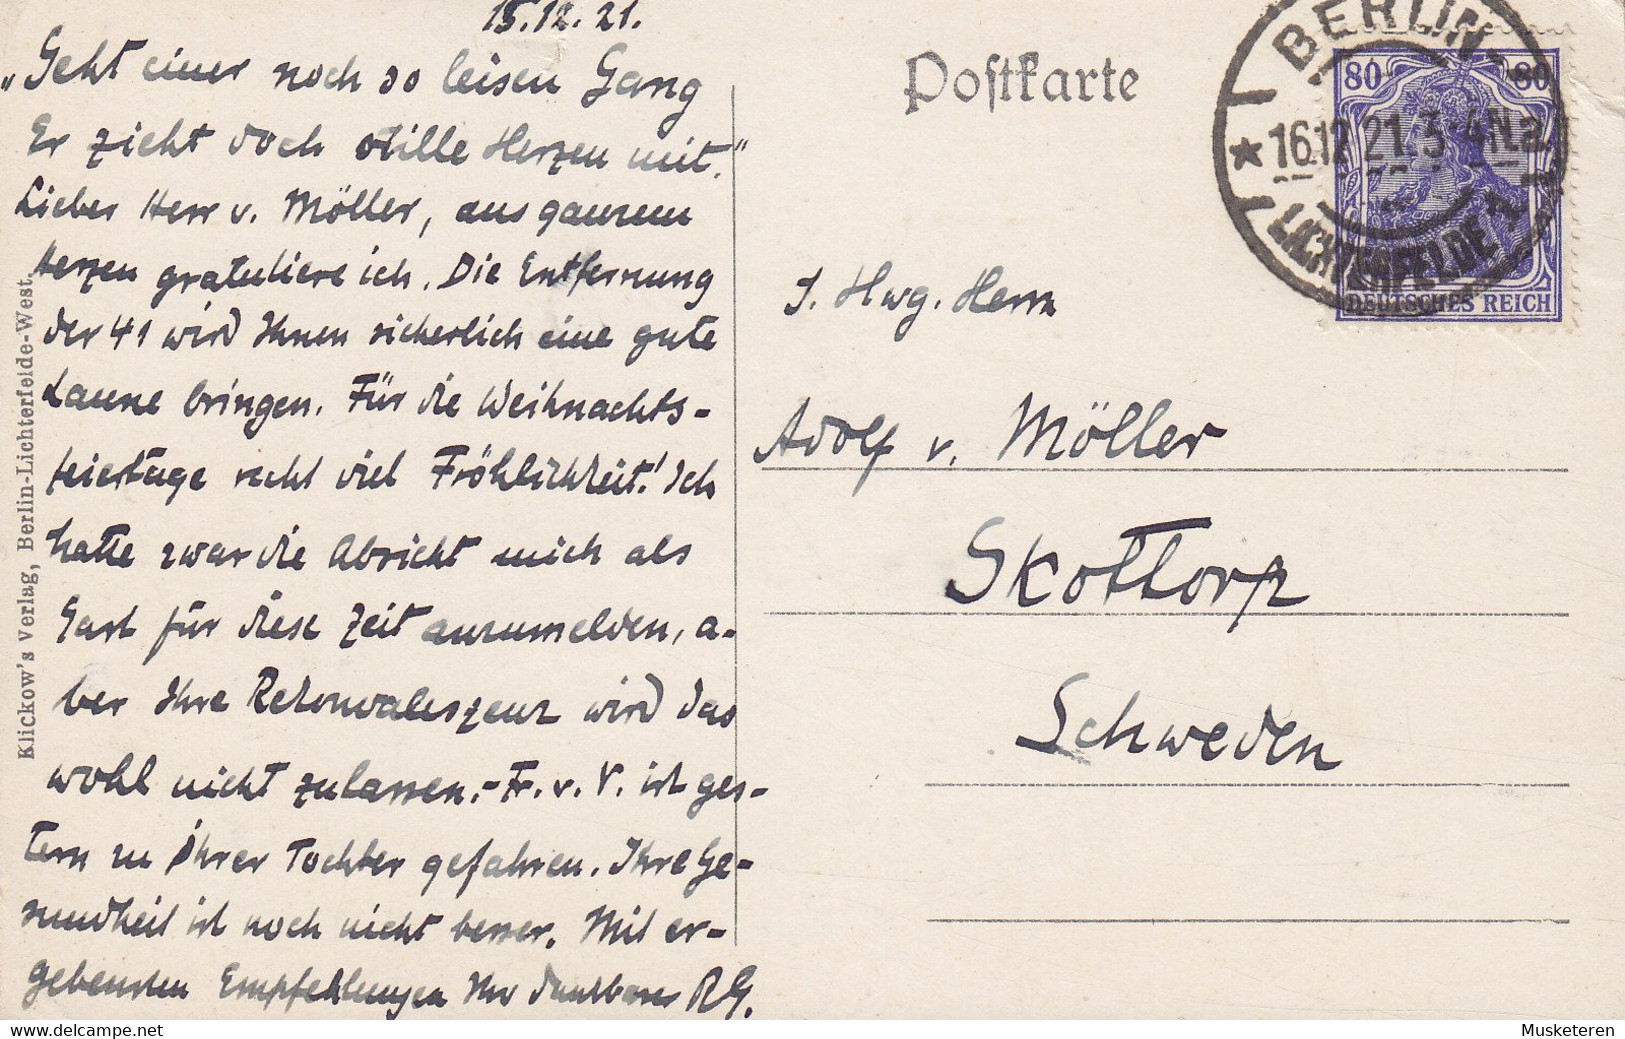 15.12.21.
„Geht einer noch so leisen Gang
Er zieht doch stille Herzen mit."
Liebes Herr v. Möller, aus ganzem
Herzen gratuliere ich. Die Entfernung
der 41 wird Ihnen sicherlich eine gute
Laune bringen. Für die Weihnachts-
feiertage recht viel Fröhlichkeit! Ich
hatte zwar die Absicht mich als
Gast für diese Zeit anzumelden, a-
ber Ihre Rekonvaleszenz wird das
wohl nicht zulassen.- Fr. v. V. ist ges-
tern zu ihrer Tochter gefahren. Ihre Ge-
sundheit ist noch nicht besser. Mit er-
gebensten Empfehlungen Ihr dankbares R.G.
Klickow's Verlag, Berlin-Lichterfelde-West.
Postkarte
BERLIN-
* 16.12.21. 3-4N.
LICHTERFELDE 1
80 80
DEUTSCHES REICH
S. Hwg. Herrn
Adolf v. Möller
Skottorp
Schweden
delcampe.net
Musketeren